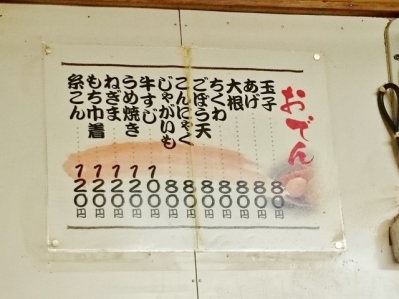 おでん
玉子 80円
あげ 80円
大根 80円
ちくわ 80円
ごぼう天 80円
こんにゃく 80円
じゃがいも 80円
牛すじ 100円
うめ焼き 120円
ねぎま 120円
もち巾着 120円
糸こん 120円